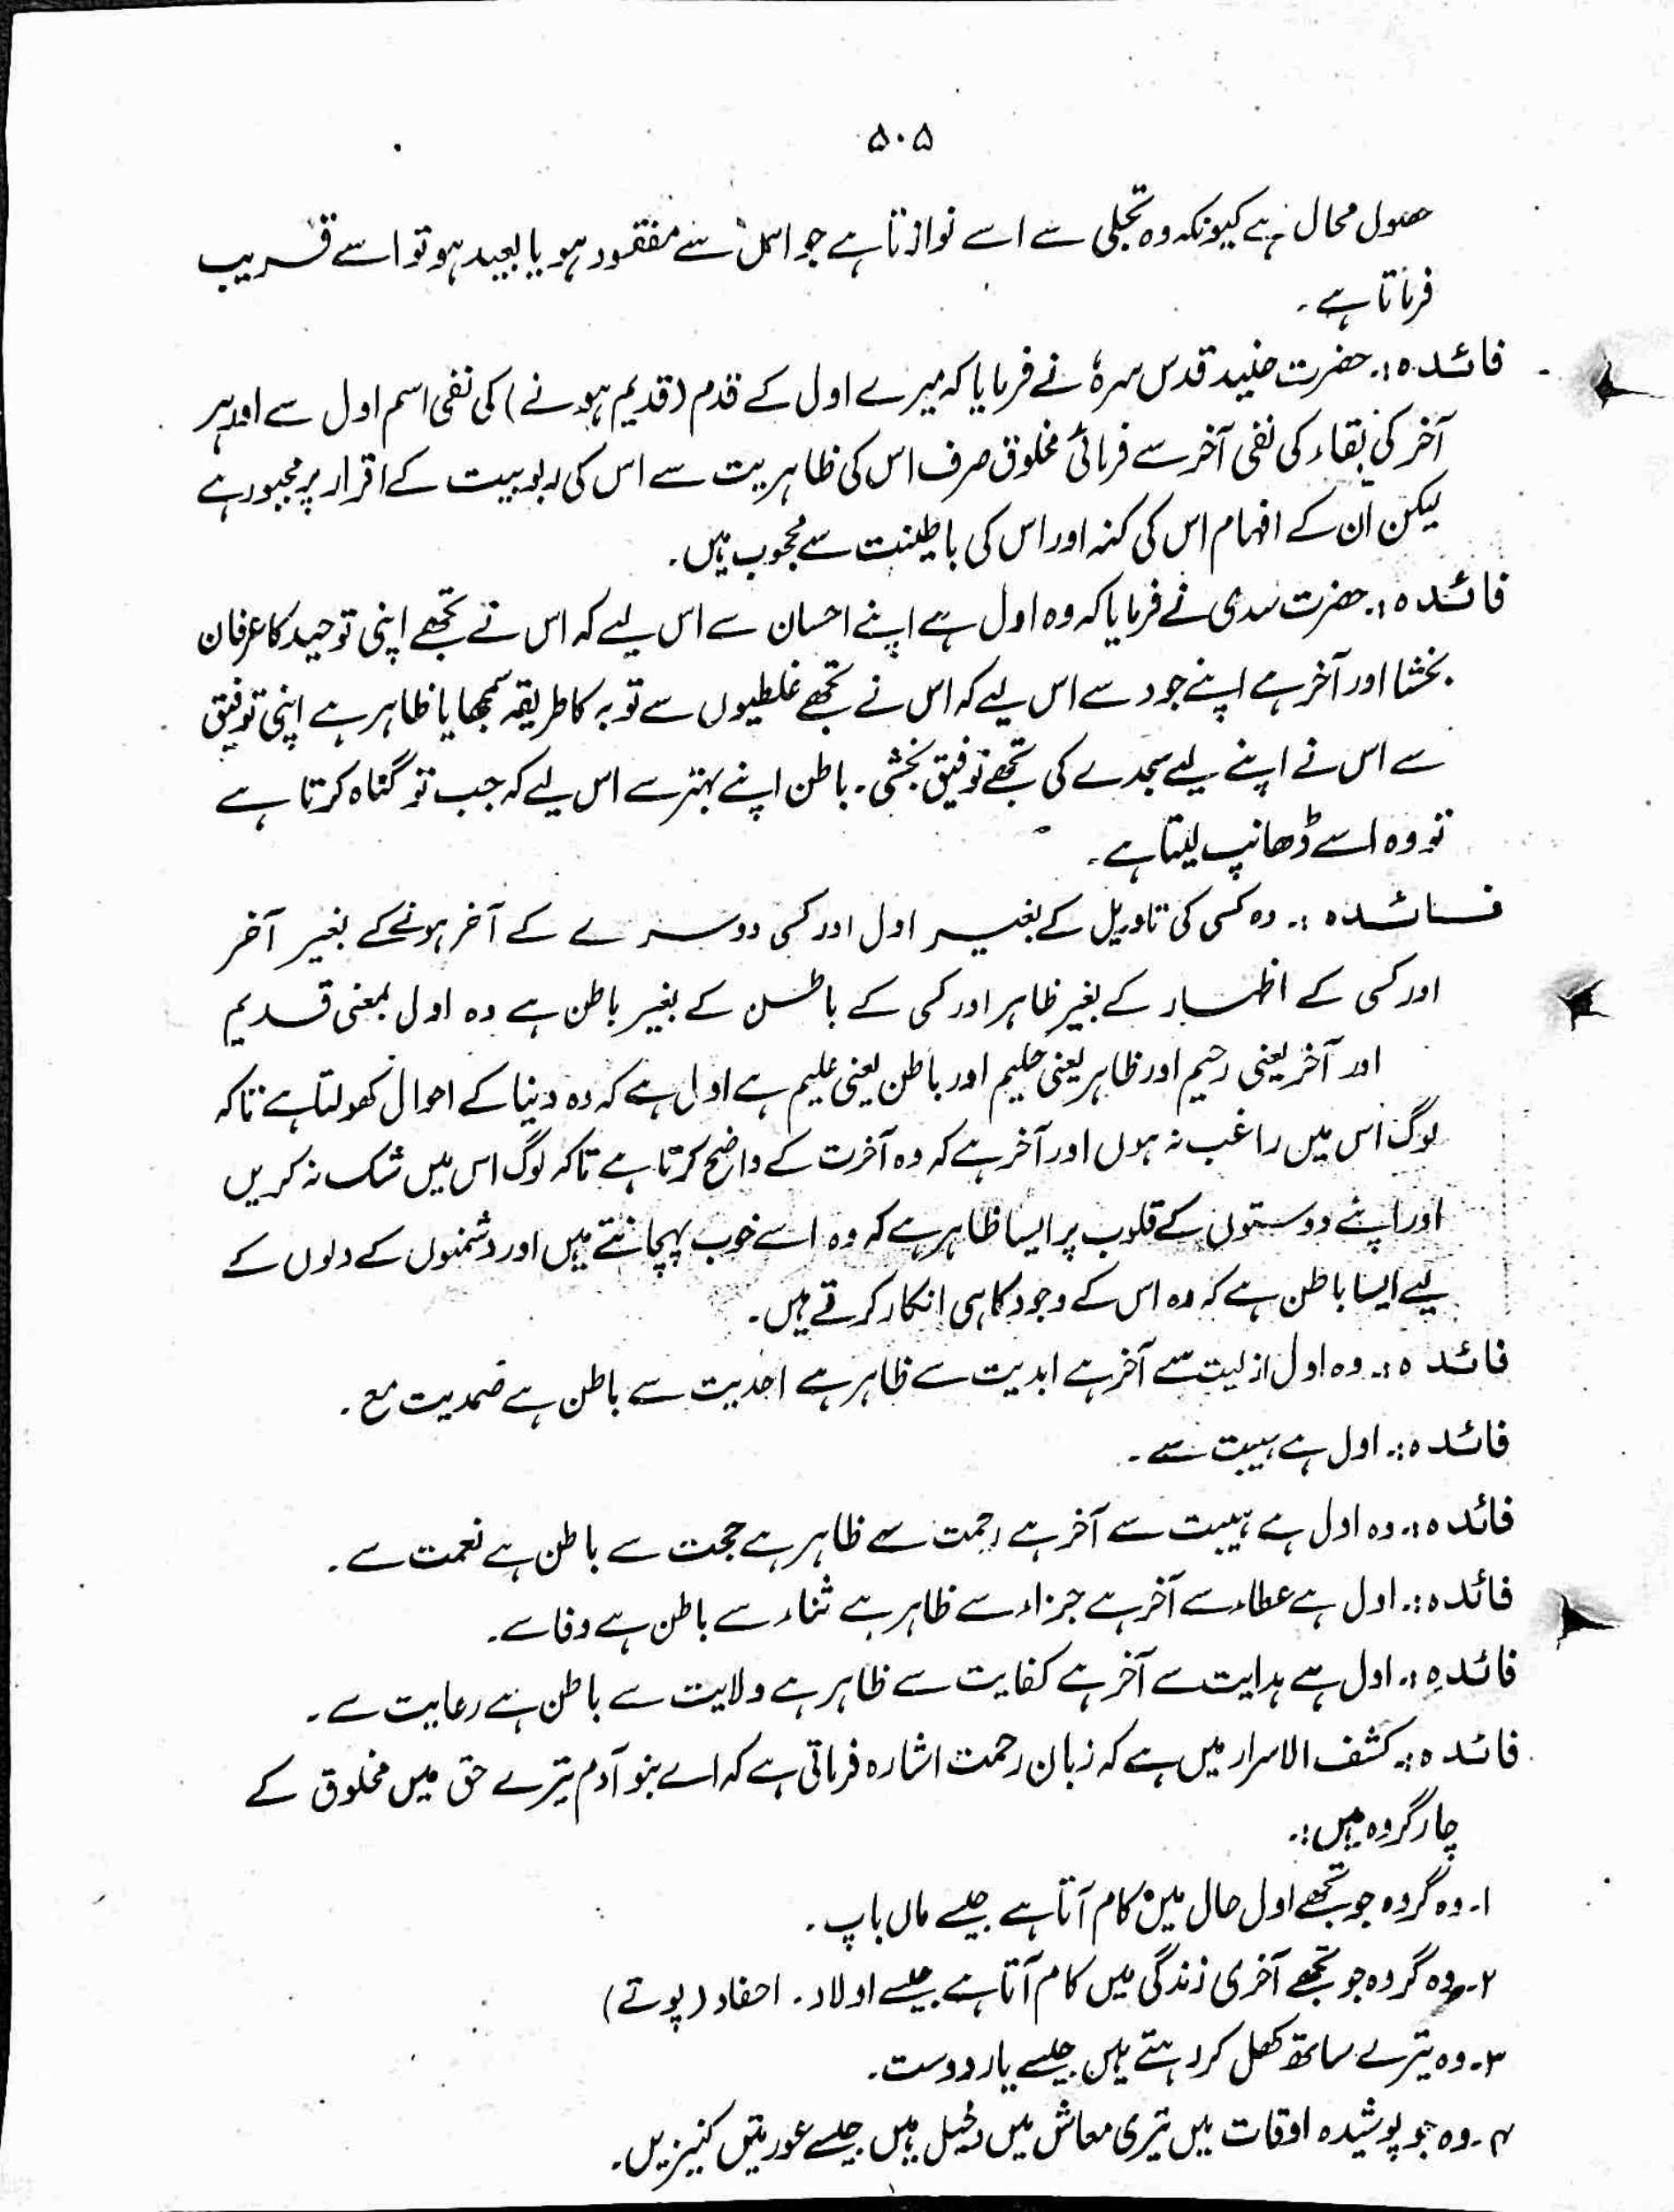 ۵۰۵
حصول محال ہے کیونکہ وہ تجلی سے اسے نوازتا ہے جو اس سے مفقود ہو یا بعید ہو تو اسے قریب
فرماتا ہے ۔
فائدہ :۔ حضرت جنید قدس سرہٗ نے فرمایا کہ میرے اول کے قدم (قدیم ہونے) کی نفی اسم اول سے اور ہر
آخر کی بقاء کی نفی آخر سے فرمائی مخلوق صرف اس کی ظاہریت سے اس کی ربوبیت کے اقرار پر مجبور ہے
لیکن ان کے افہام اس کی کنہ اور اس کی باطینت سے محجوب ہیں ۔
فائدہ :۔ حضرت سدی نے فرمایا کہ وہ اول ہے اپنے احسان سے اس لیے کہ اس نے تجھے اپنی توحید کا عرفان
بخشا اور آخر ہے اپنے جود سے اس لیے کہ اس نے تجھے غلطیوں سے توبہ کا طریقہ سمجھایا ظاہر ہے اپنی توفیق
سے اس نے اپنے لیے سجدے کی تجھے توفیق بخشی ۔ باطن اپنے سے اس لیے کہ جب تو گناہ کرتا ہے
تو وہ اسے ڈھانپ لیتا ہے ۔
فائدہ :۔ وہ کسی کی تاویل کے بغیر اول اور کسی دوسرے کے آخر ہونے کے بغیر آخر
اور کسی کے اظہار کے بغیر ظاہر اور کسی کے باطن کے بغیر باطن ہے وہ اول بمعنی قدیم
اور آخر یعنی رحیم اور ظاہر یعنی حلیم اور باطن یعنی علیم ہے اول ہے کہ وہ دنیا کے احوال کھولتا ہے تاکہ
لوگ اس میں راغب نہ ہوں اور آخر ہے کہ وہ آخرت کے واضح کرتا ہے تاکہ لوگ اس میں شک نہ کریں
اور اپنے دوستوں کے قلوب پر ایسا ظاہر ہے کہ وہ اسے خوب پہچانتے ہیں اور دشمنوں کے دلوں کے
لیے ایسا باطن ہے کہ وہ اس کے وجود کا ہی انکار کرتے ہیں ۔
فائدہ :۔ وہ اول ازلیت سے آخر ہے ابدیت سے ظاہر ہے احدیت سے باطن ہے صمدیت مع ۔
فائدہ :۔ اول ہے ہیبت سے ۔
فائدہ :۔ وہ اول ہے ہیبت سے آخر ہے رحمت سے ظاہر ہے حجت سے باطن ہے نعمت سے ۔
فائدہ :۔ اول ہے عطاء سے آخر ہے جزاء سے ظاہر ہے ثناء سے باطن ہے وفا سے ۔
فائدہ :۔ اول ہے ہدایت سے آخر ہے کفایت سے ظاہر ہے ولایت سے باطن ہے رعایت سے ۔
فائدہ :۔ کشف الاسرار میں ہے کہ زبان رحمت اشارہ فرماتی ہے کہ اے بنو آدم تیرے حق میں مخلوق کے
چار گروہ ہیں :۔
۱۔ وہ گروہ جو تجھے اول حال میں کام آتا ہے جیسے ماں باپ ۔
۲۔ وہ گروہ جو تجھے آخری زندگی میں کام آتا ہے جیسے اولاد ۔ احفاد (پوتے)
۳۔ وہ تیرے ساتھ کھل کر رہتے ہیں جیسے یار دوست ۔
۴۔ وہ جو پوشیدہ اوقات میں تیری معاش میں دخیل ہیں جیسے عورتیں کنیزیں ۔